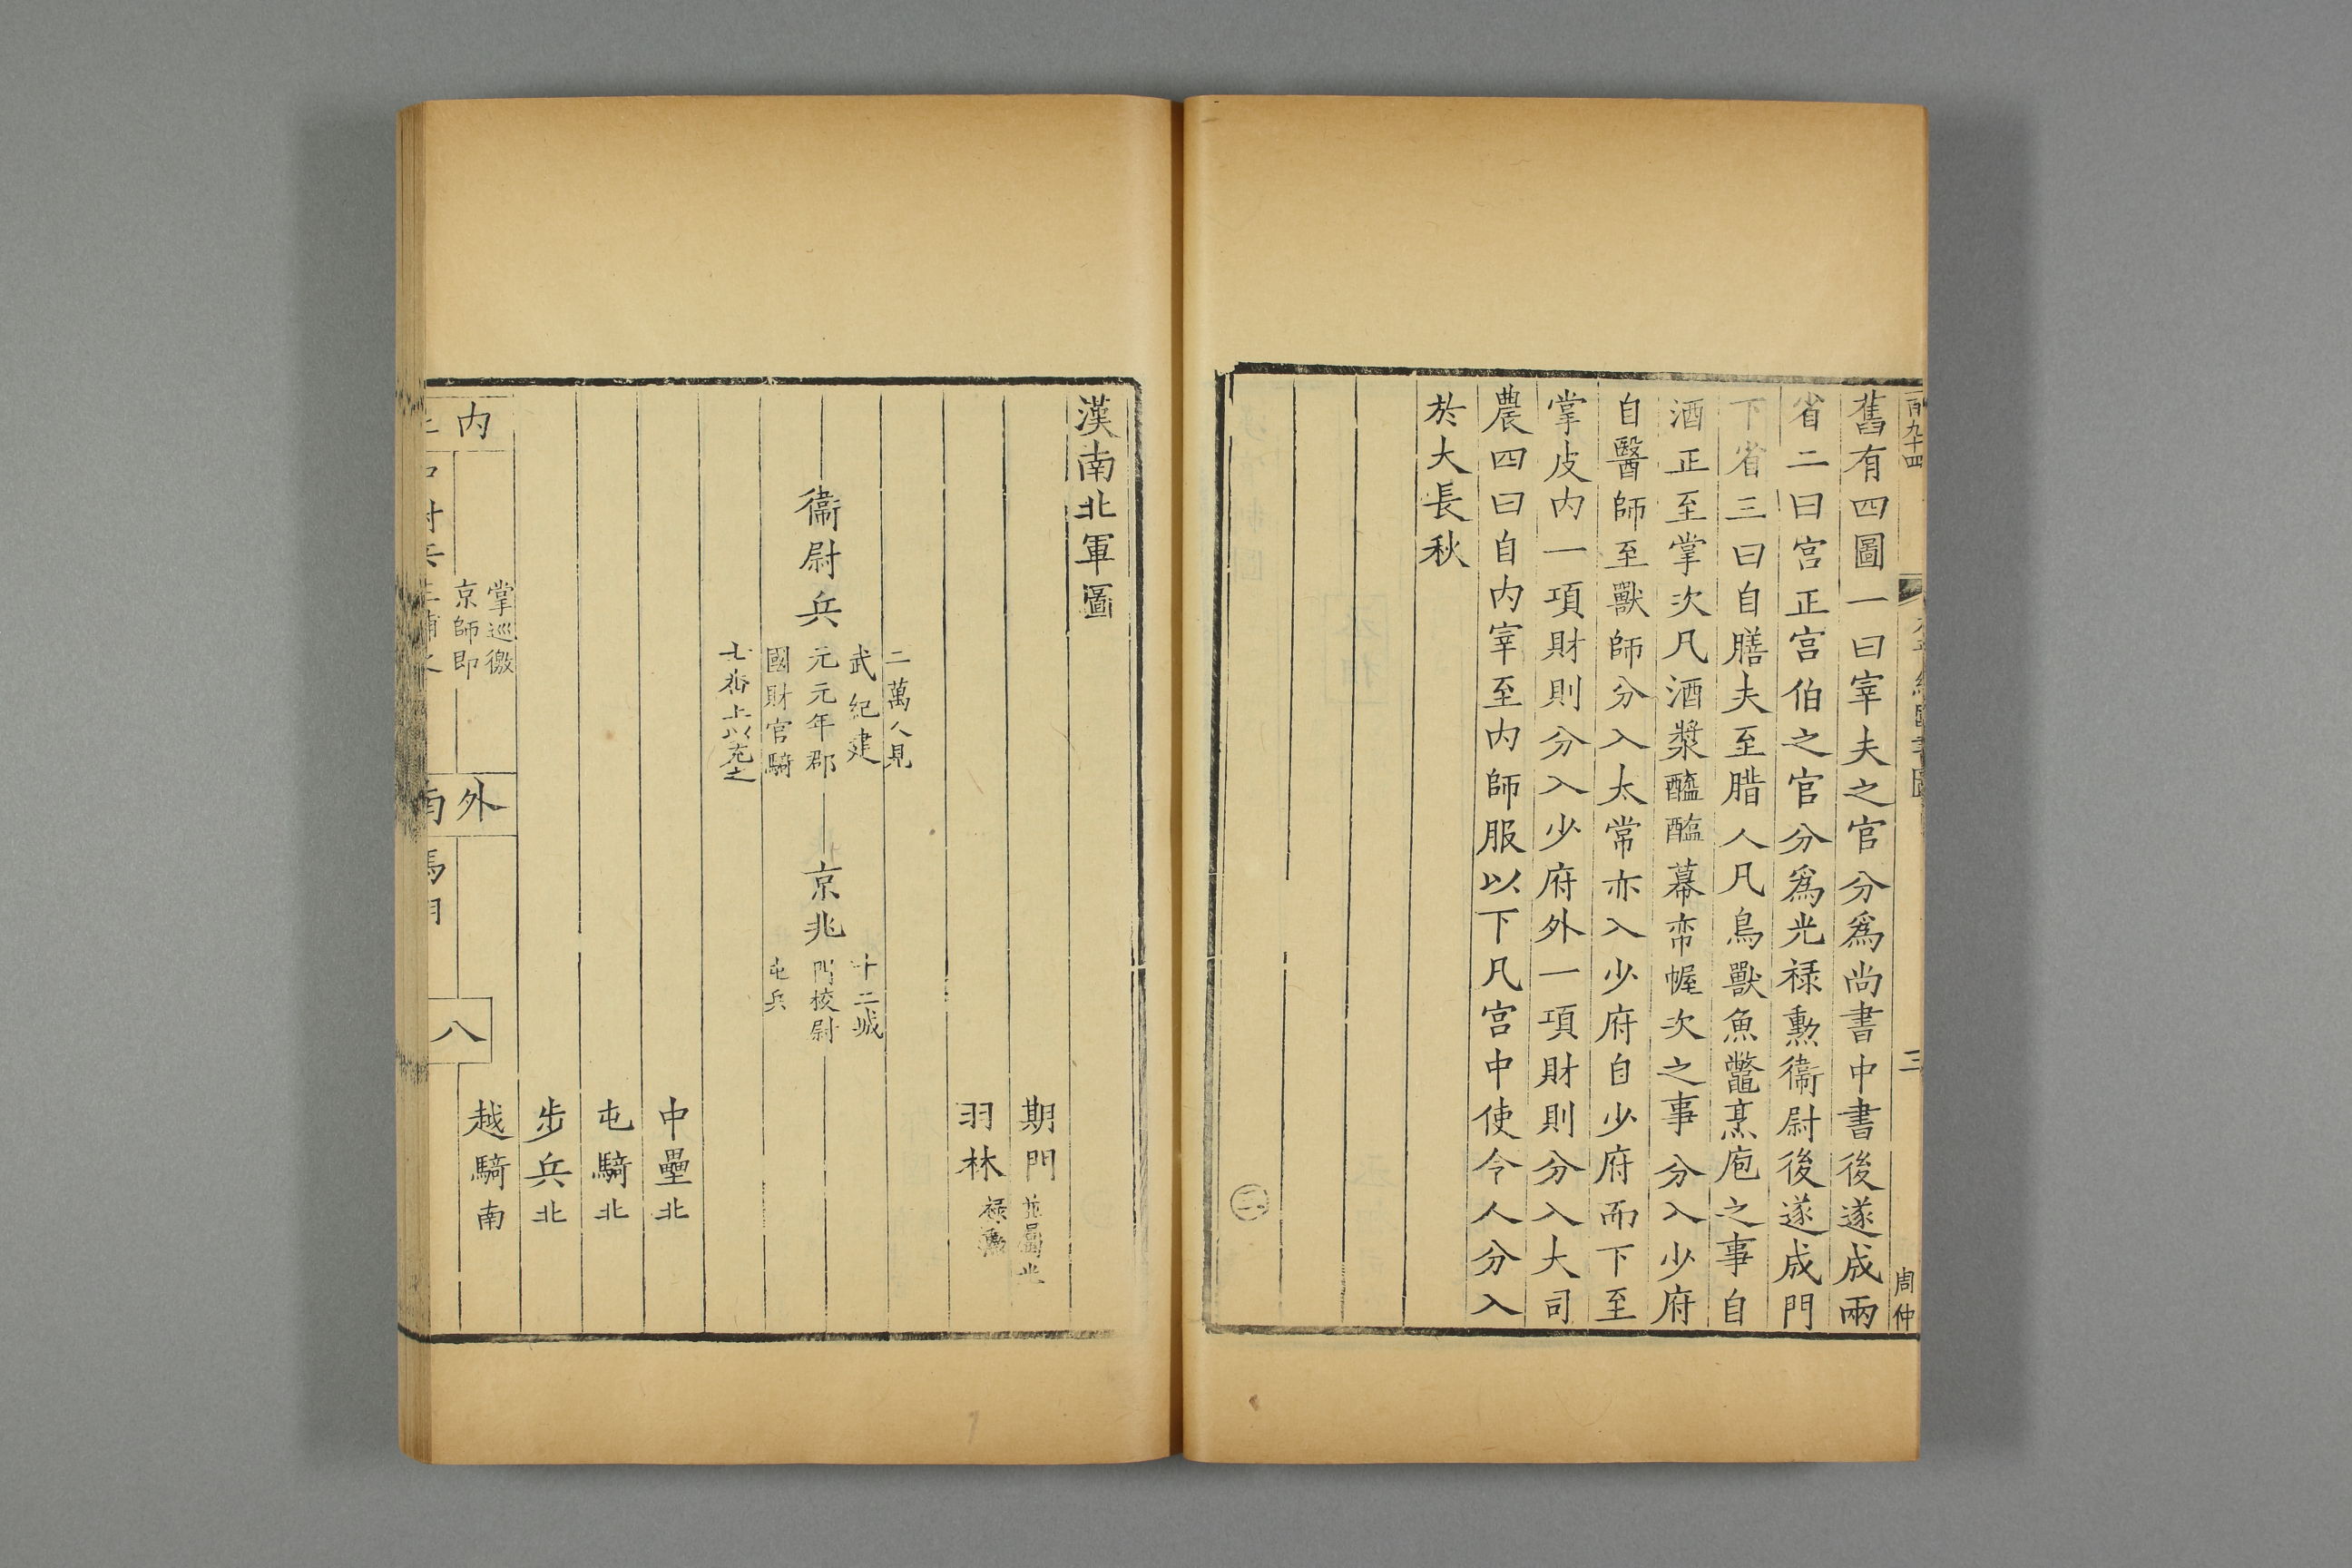 百九十四
三
周仲
舊有四圖一曰宰夫之官分爲尚書中書後遂成兩
省二曰宫正宫伯之官分爲光禄勲衞尉後遂成門
下省三曰自膳夫至腊人凡鳥獸魚鼈烹庖之事自
酒正至掌次凡酒漿醯醢幕帟幄次之事分入少府
自醫師至獸師分入太常亦入少府自少府而下至
掌皮内一項財則分入少府外一項財則分入大司
農四曰自内宰至内師服以下凡宫中使令人分入
於大長秋
漢南北軍圖
期門 並屬光
羽林 禄勲
二萬人見
武紀建
衞尉兵 元元年郡
國財官騎
士番上以充之
京兆
十二城
門校尉
屯兵
中壘北
屯騎北
步兵北
越騎南
内
掌巡徼
京師即
外
八